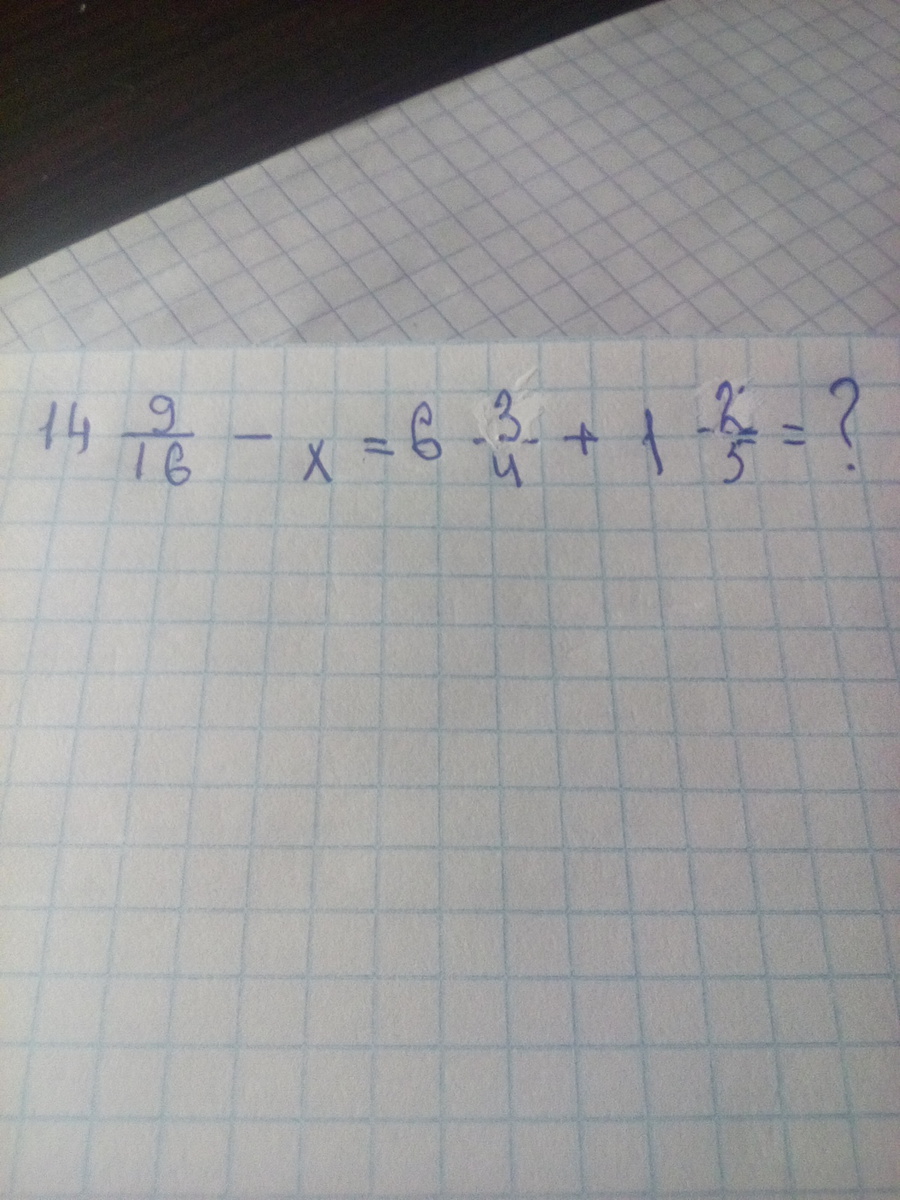 14 9/16 - x = 6 3/4 + 1 2/5 = ?